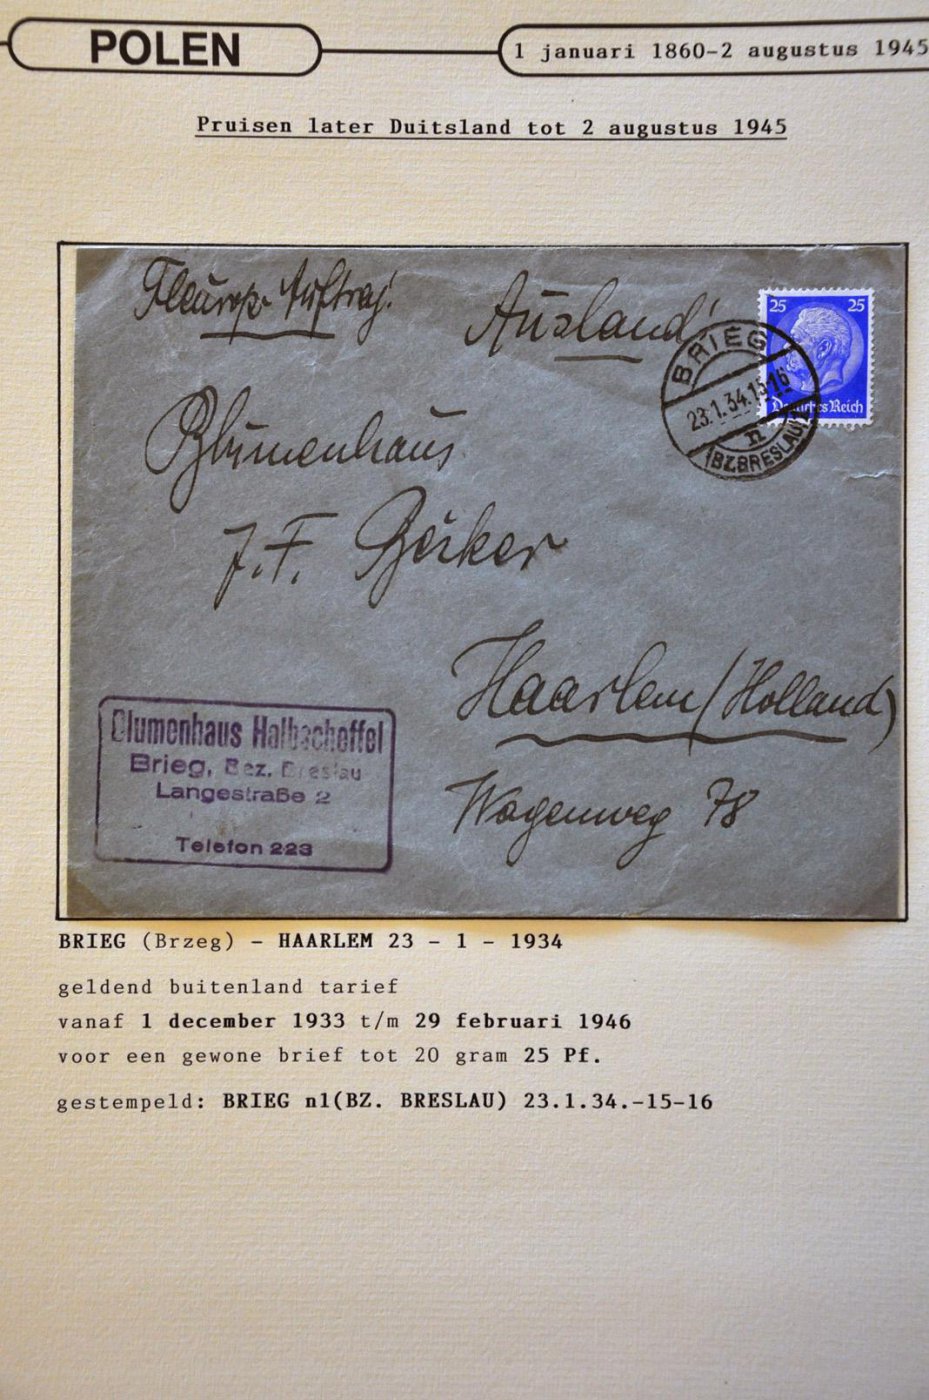 POLEN
1 januari 1860-2 augustus 1945
Pruisen later Duitsland tot 2 augustus 1945
Fleurop-Auftrag!
Ausland!
25 25
Deutsches Reich
BRIEG
23.1.34.15-16
n
(BZ. BRESLAU) 1
Blumenhaus
J.F. Bäcker
Haarlem (Holland)
Wagenweg 78
Blumenhaus Halbscheffel
Brieg, Bez. Breslau
Langestraße 2
Telefon 223
BRIEG (Brzeg) - HAARLEM 23 - 1 - 1934
geldend buitenland tarief
vanaf 1 december 1933 t/m 29 februari 1946
voor een gewone brief tot 20 gram 25 Pf.
gestempeld: BRIEG n1(BZ. BRESLAU) 23.1.34.-15-16